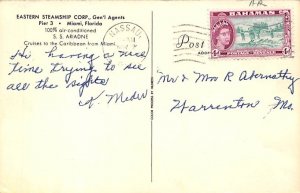 AR
EASTERN STEAMSHIP CORP., Gen'l Agents
Pier 3 • Miami, Florida
100% air-conditioned
S. S. ARIADNE
Cruises to the Caribbean from Miami
Hi Having a nice
time trying to see
all the sights
NASSAU
BAHAMAS
Post
ADDR
Mr & Mrs R Abernathy
Warrenton, Mo.